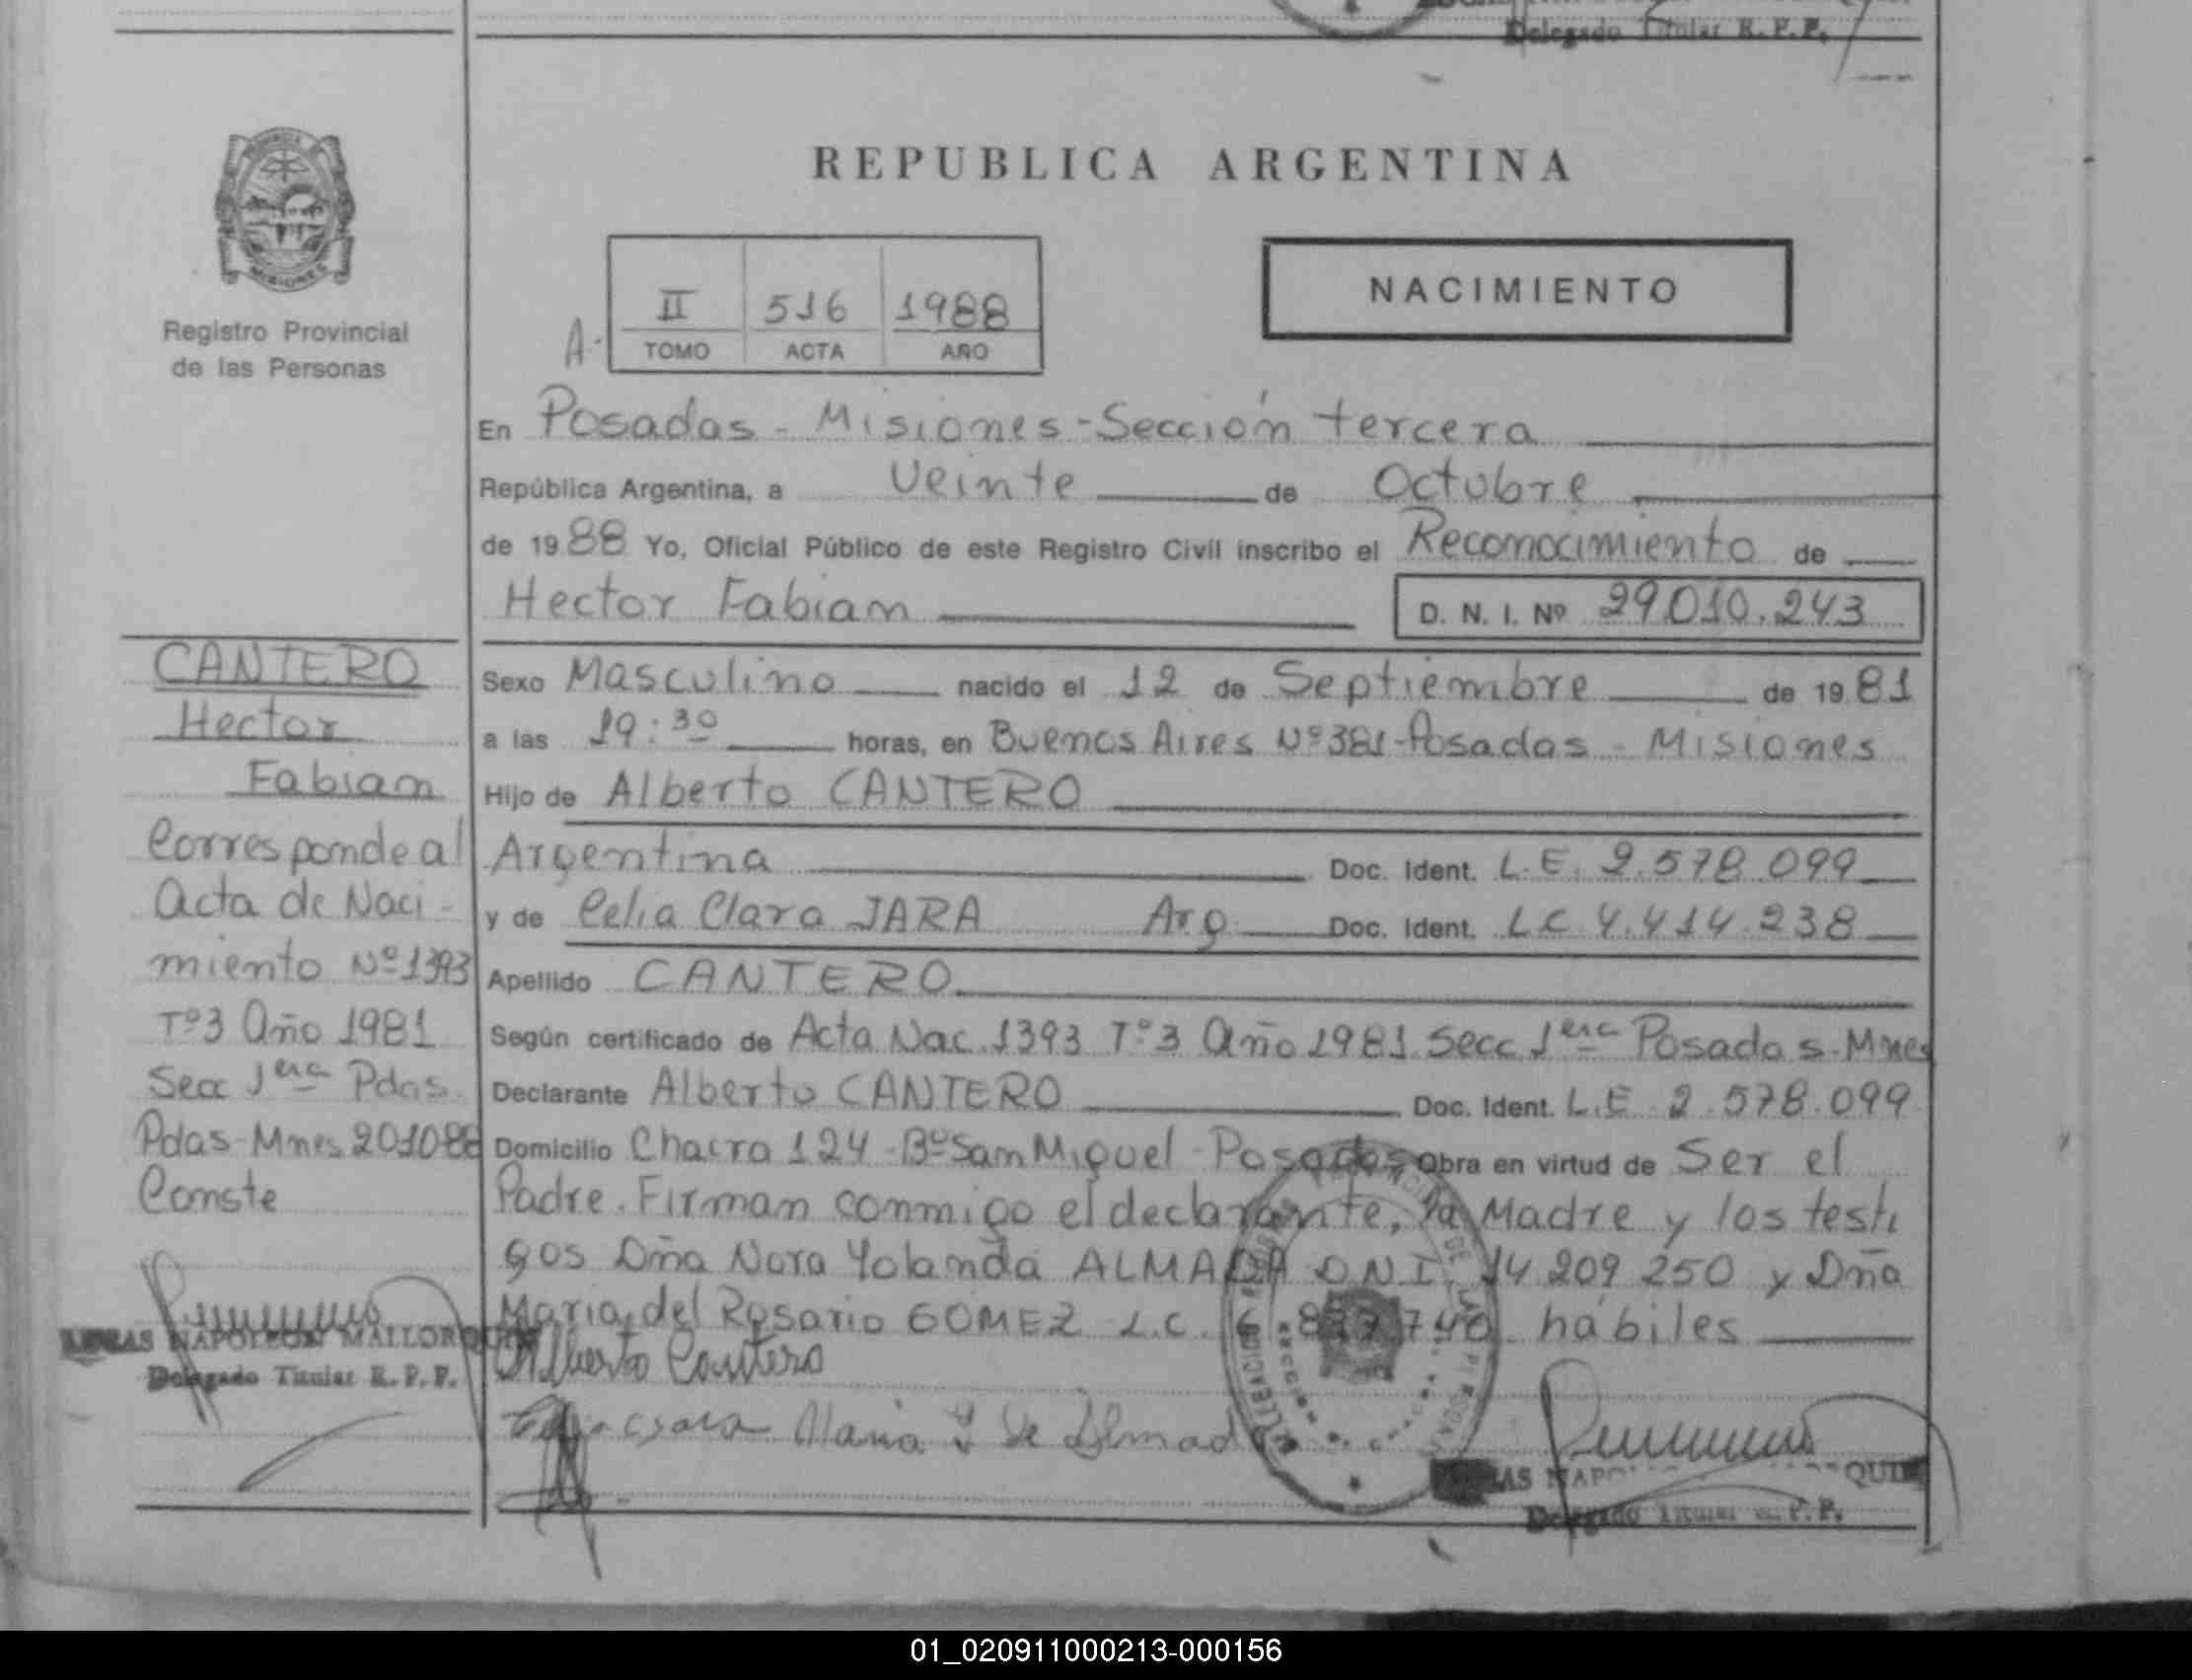 Delegado Titular R. P. P.
PROVINCIA
MISIONES
Registro Provincial
de las Personas
REPUBLICA ARGENTINA
A.
II 516 1988
TOMO ACTA AÑO
NACIMIENTO
En Posadas - Misiones - Sección tercera
República Argentina, a Veinte de Octubre
de 1988 Yo, Oficial Público de este Registro Civil inscribo el Reconocimiento de
Hector Fabian D. N. I. Nº 29.010.243
Sexo Masculino nacido el 12 de Septiembre de 1981
a las 19:30 horas, en Buenos Aires Nº 381 - Posadas - Misiones
Hijo de Alberto CANTERO
Argentina Doc. Ident. L.E. 2.578.099
y de Celia Clara JARA Arg Doc. Ident. LC 4.414.238
Apellido CANTERO
Según certificado de Acta Nac. 1393 Tº 3 Año 1981 Secc 1era Posadas - Mnes
Declarante Alberto CANTERO Doc. Ident. L.E 2.578.099
Domicilio Chacra 124 - Bº San Miguel - Posadas Obra en virtud de Ser el
Padre. Firman conmigo el declarante, la Madre y los testi
gos Dña Nora Yolanda ALMADA D.N.I. 14 209 250 y Dña
Maria del Rosario GOMEZ L.C. 6 740 hábiles
CANTERO
Hector
Fabian
Corresponde al
Acta de Naci-
miento Nº 1393
Tº 3 Año 1981
Secc 1era Pdas.
Pdas - Mnes 201088
Conste
NAPOLEON MALLORQUIN
Delegado Titular R. P. P.
Alberto Cantero
Maria de Almada
Delegado Titular R. P. P.
01_020911000213-000156